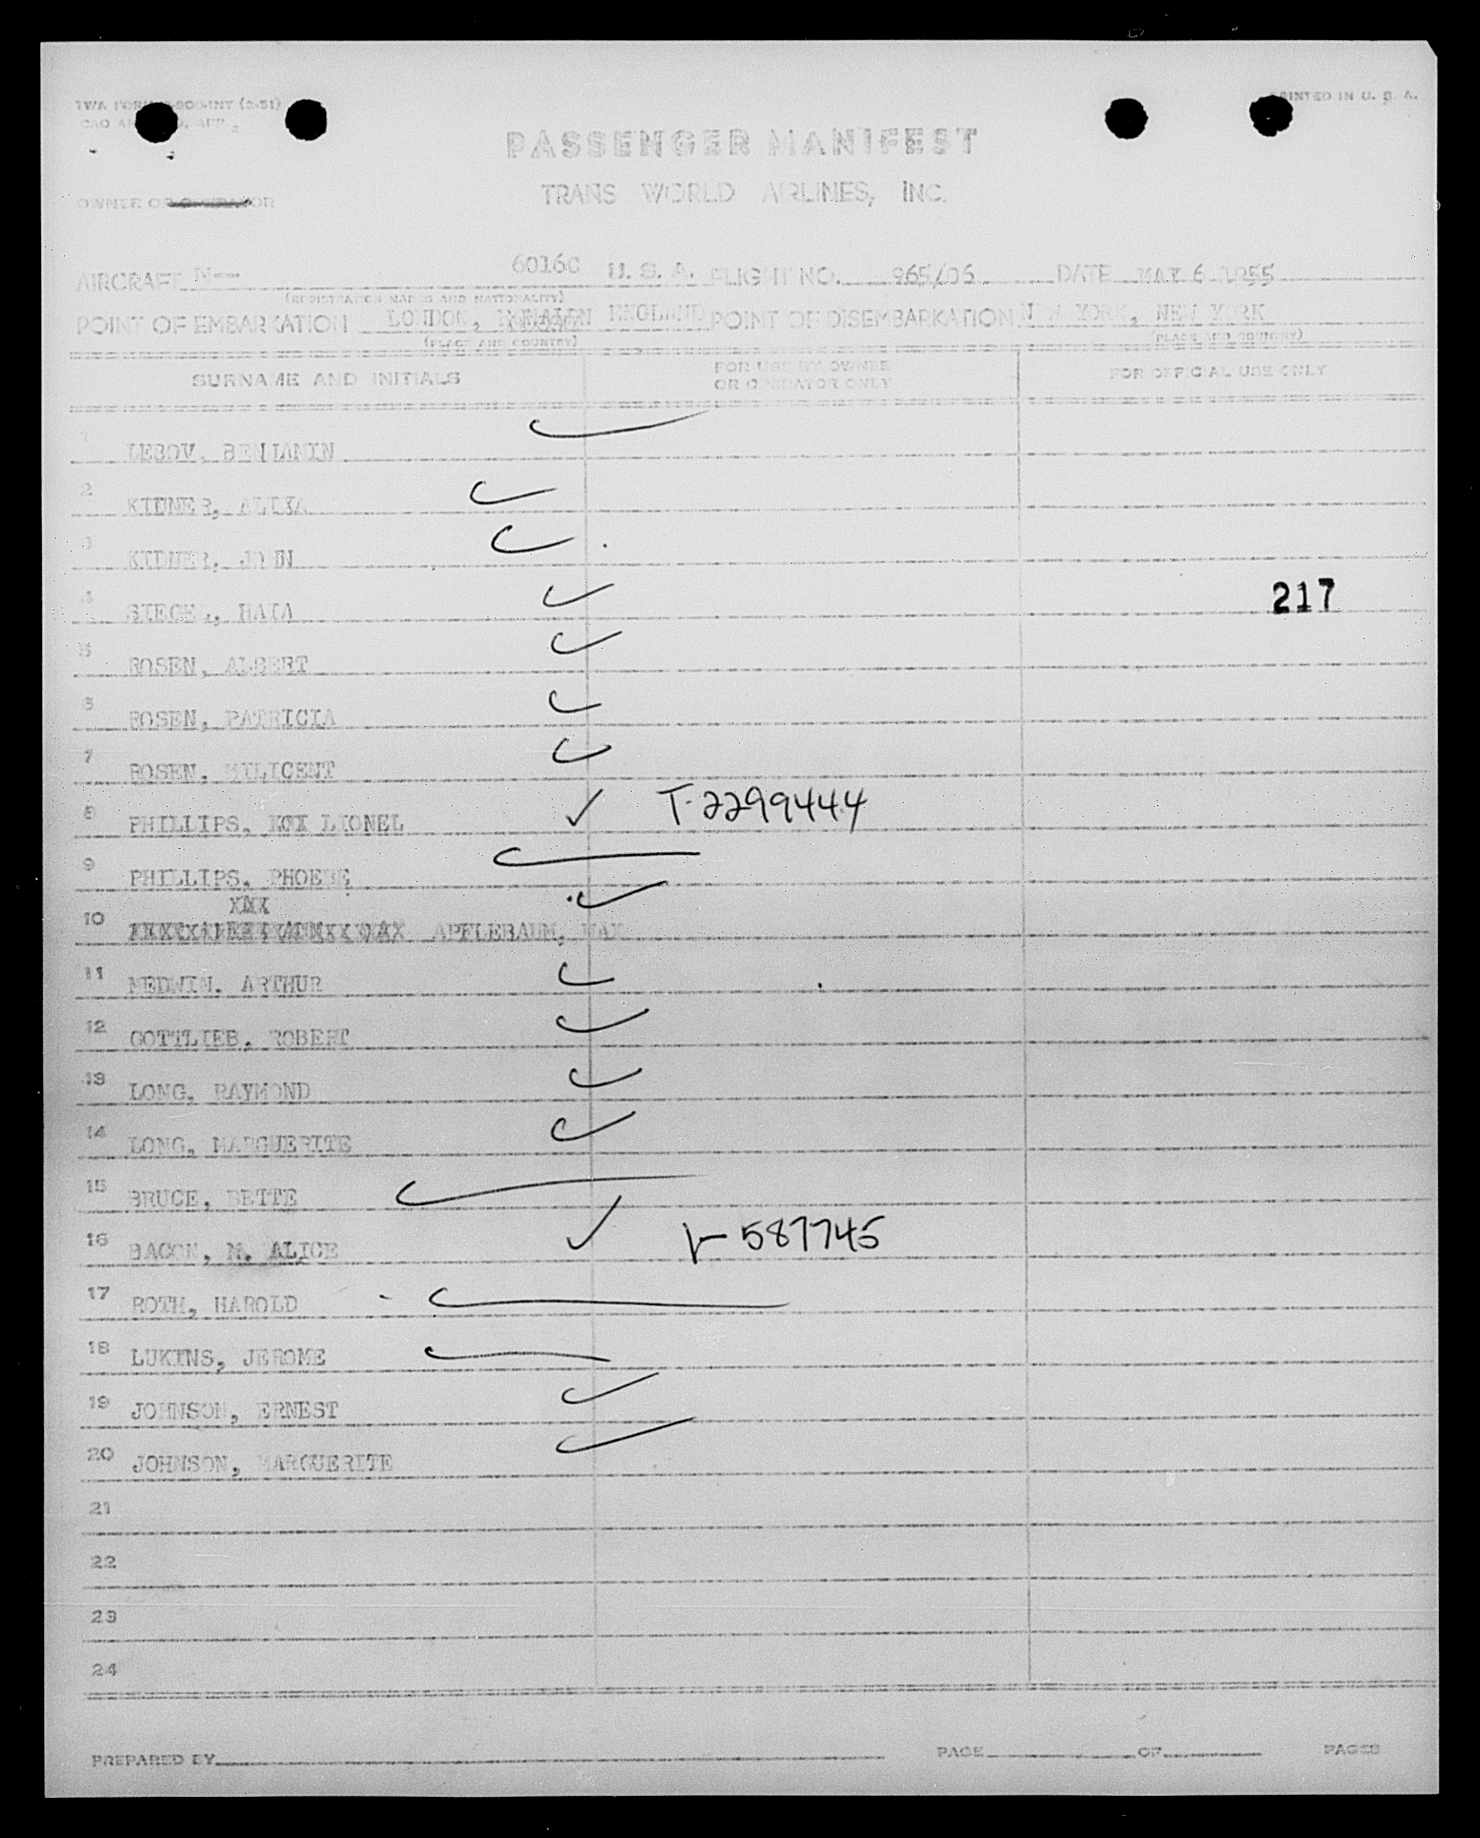 TWA FORM (2-51) PRINTED IN U. S. A.
PASSENGER MANIFEST
TRANS WORLD AIRLINES, INC.
OWNER OR OPERATOR
AIRCRAFT N-- 6016C U. S. A. FLIGHT NO. 965/06 DATE MAY 6 1955
(REGISTRATION MARKS AND NATIONALITY)
POINT OF EMBARKATION LONDON, ENGLAND POINT OF DISEMBARKATION NEW YORK, NEW YORK
(PLACE AND COUNTRY) (PLACE AND COUNTRY)
SURNAME AND INITIALS FOR USE BY OWNER OR OPERATOR ONLY FOR OFFICIAL USE ONLY
1 LEBOV, BENJAMIN
2 KIDNER,
3 KIDNER, JOHN
4 SIEGEL, 217
5 ROSEN, ALBERT
6 ROSEN, PATRICIA
7 ROSEN, MILICENT
8 PHILLIPS, LIONEL T-2299444
9 PHILLIPS, PHOEBE
XXX
10 APPLEBAUM, MAX
11 MEDWIN, ARTHUR
12 GOTTLIEB, ROBERT
13 LONG, RAYMOND
14 LONG, MARGUERITE
15 BRUCE, BETTE
16 BACON, M. ALICE V-587745
17 ROTH, HAROLD
18 LUKINS, JEROME
19 JOHNSON, ERNEST
20 JOHNSON, MARGUERITE
21
22
23
24
PREPARED BY PAGE OF PAGES